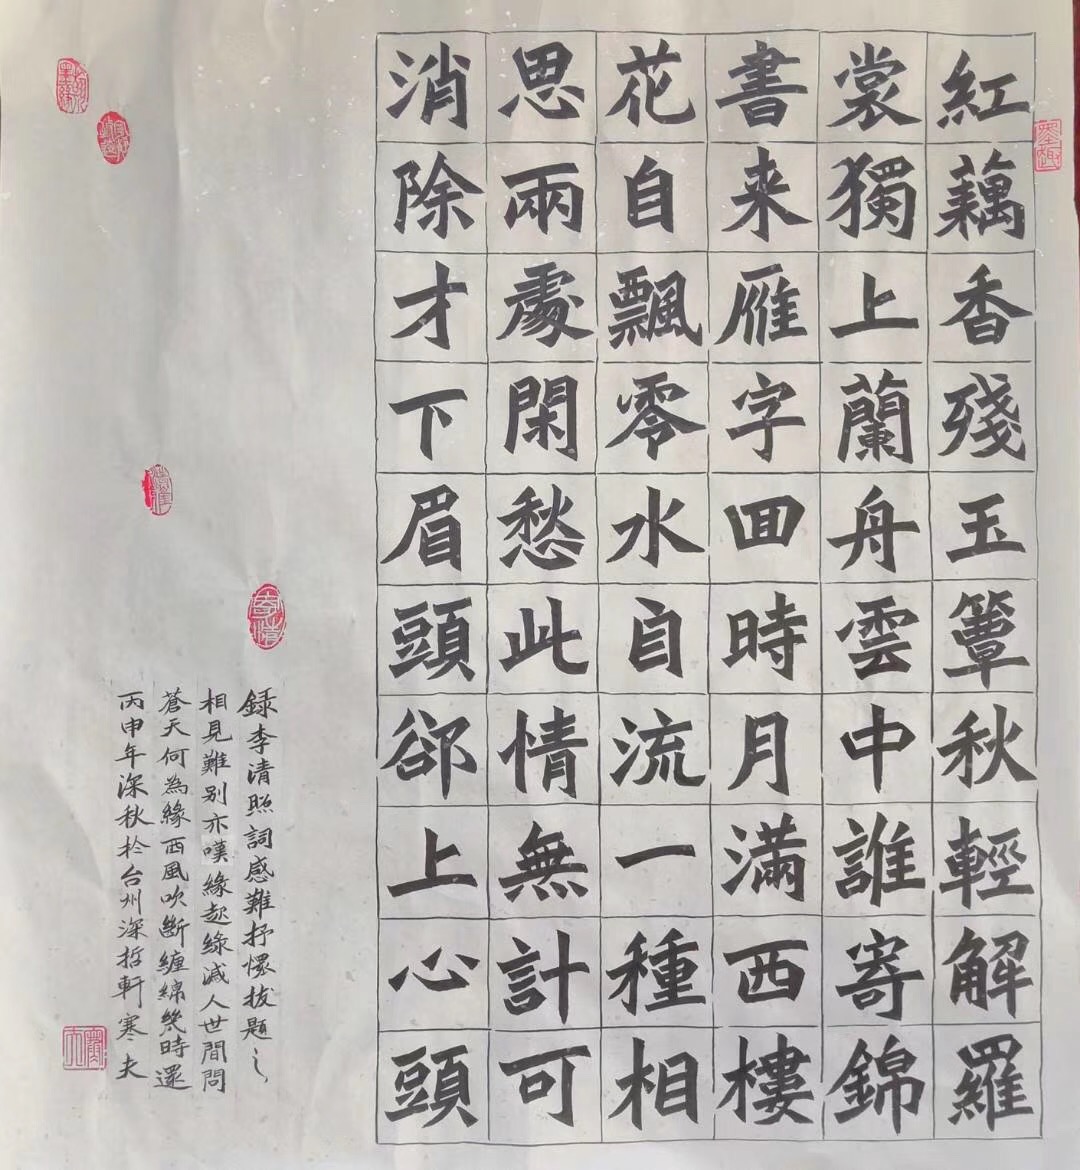 紅藕香殘玉簟秋輕解羅
裳獨上蘭舟雲中誰寄錦
書来雁字回時月滿西樓
花自飄零水自流一種相
思兩處閑愁此情無計可
消除才下眉頭郤上心頭
錄李清照詞感難抒懷拔題之
相見難别亦嘆緣起緣减人世間問
蒼天何為緣西風吹斷纏綿幾時還
丙申年深秋於台州深哲軒寒夫